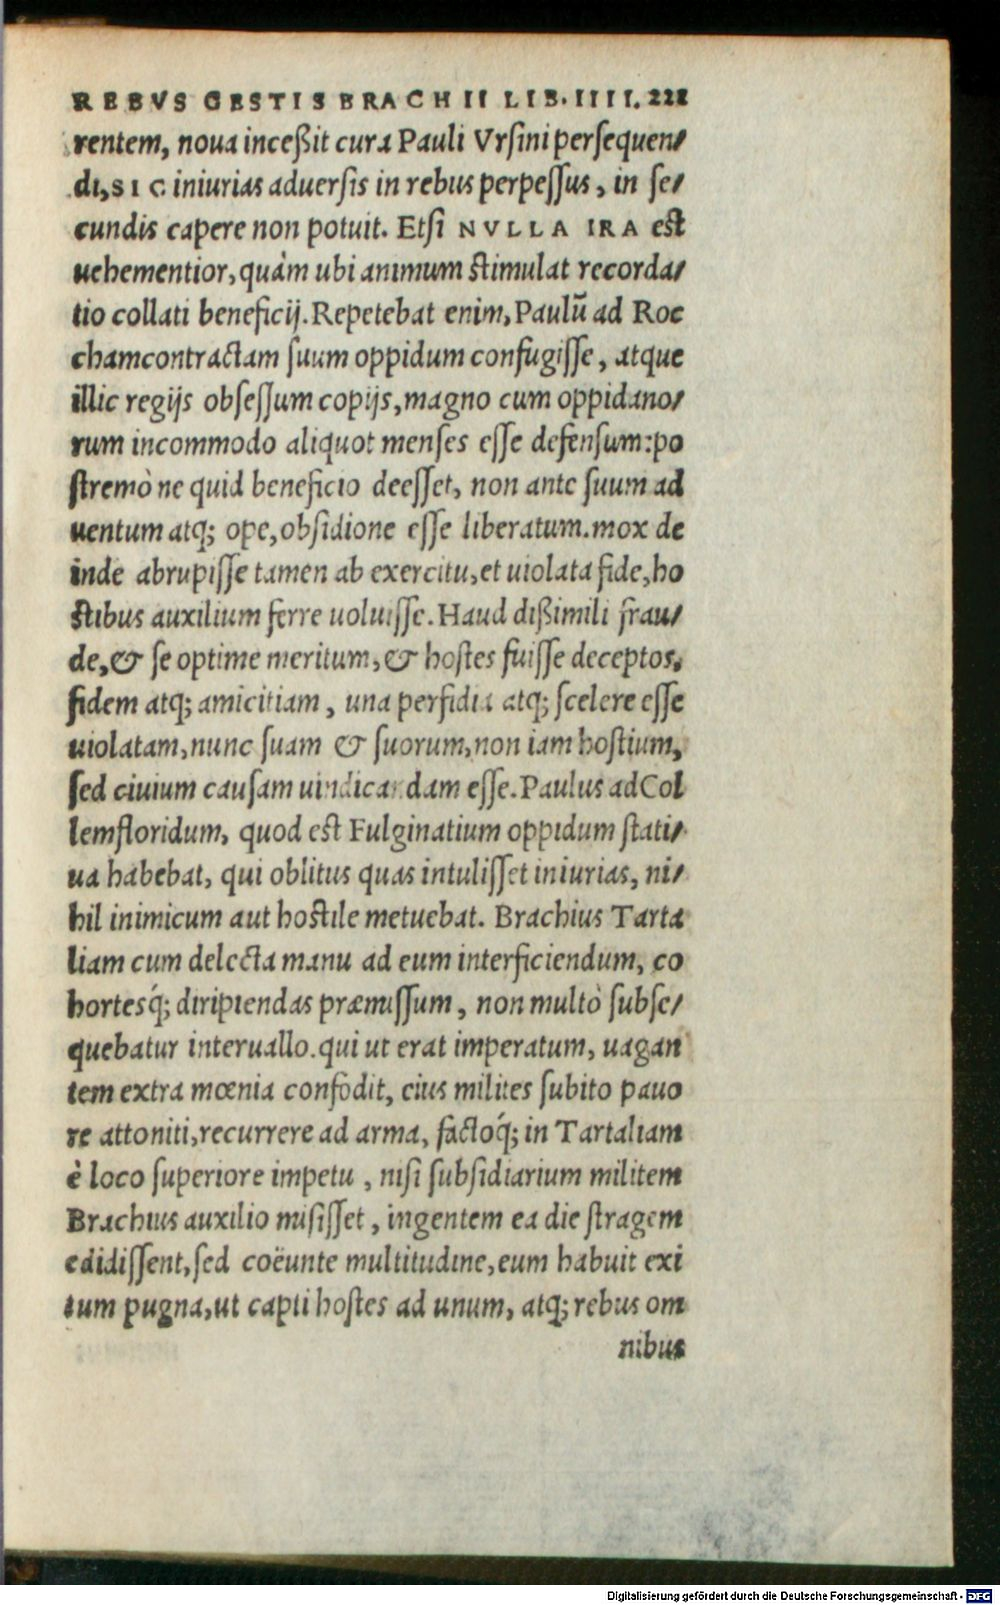 REBVS GESTIS BRACHII LIB. IIII. 221
rentem, noua inceßit cura Pauli Vrsini persequen/
di, SIC iniurias aduersis in rebus perpessus, in se/
cundis capere non potuit. Etsi NVLLA IRA est
uehementior, quàm ubi animum stimulat recorda/
tio collati beneficij. Repetebat enim, Paulū ad Roc
chamcontractam suum oppidum confugisse, atque
illic regijs obsessum copijs, magno cum oppidano/
rum incommodo aliquot menses esse defensum: po
stremò ne quid beneficio deesset, non ante suum ad
uentum atq; ope, obsidione esse liberatum. mox de
inde abrupisse tamen ab exercitu, et uiolata fide, ho
stibus auxilium ferre uoluisse. Haud dißimili frau/
de, & se optime meritum, & hostes fuisse deceptos,
fidem atq; amicitiam, una perfidia atq; scelere esse
uiolatam, nunc suam & suorum, non iam hostium,
sed ciuium causam uindicandam esse. Paulus ad Col
lemfloridum, quod est Fulginatium oppidum stati/
ua habebat, qui oblitus quas intulisset iniurias, ni/
hil inimicum aut hostile metuebat. Brachius Tarta
liam cum delecta manu ad eum interficiendum, co
hortesq́; diripiendas præmissum, non multò subse/
quebatur interuallo. qui ut erat imperatum, uagan
tem extra mœnia confodit, eius milites subito pauo
re attoniti, recurrere ad arma, factoq́; in Tartaliam
è loco superiore impetu, nisi subsidiarium militem
Brachius auxilio misisset, ingentem ea die stragem
edidissent, sed coëunte multitudine, eum habuit exi
tum pugna, ut capti hostes ad unum, atq; rebus om
nibus
Digitalisierung gefördert durch die Deutsche Forschungsgemeinschaft - DFG